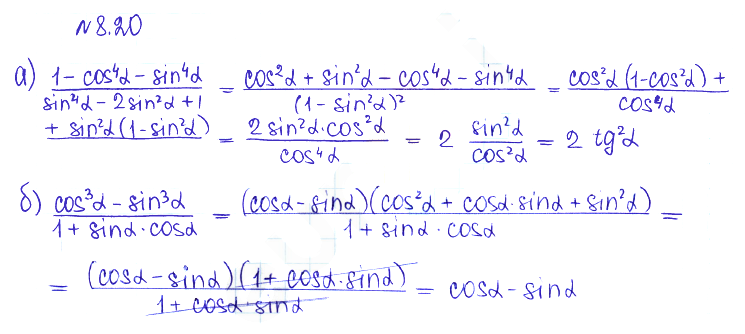 №8.20
а) (1 - cos⁴α - sin⁴α)/(sin⁴α - 2sin²α + 1) = (cos²α + sin²α - cos⁴α - sin⁴α)/((1 - sin²α)²) = (cos²α (1-cos²α) +)/(cos⁴α)
+ sin²α (1-sin²α) = (2 sin²α · cos²α)/(cos⁴α) = 2 (sin²α)/(cos²α) = 2 tg²α
б) (cos³α - sin³α)/(1 + sinα · cosα) = ((cosα - sinα)(cos²α + cosα · sinα + sin²α))/(1 + sinα · cosα) =
= ((cosα - sinα)(1 + cosα · sinα))/(1 + cosα · sinα) = cosα - sinα